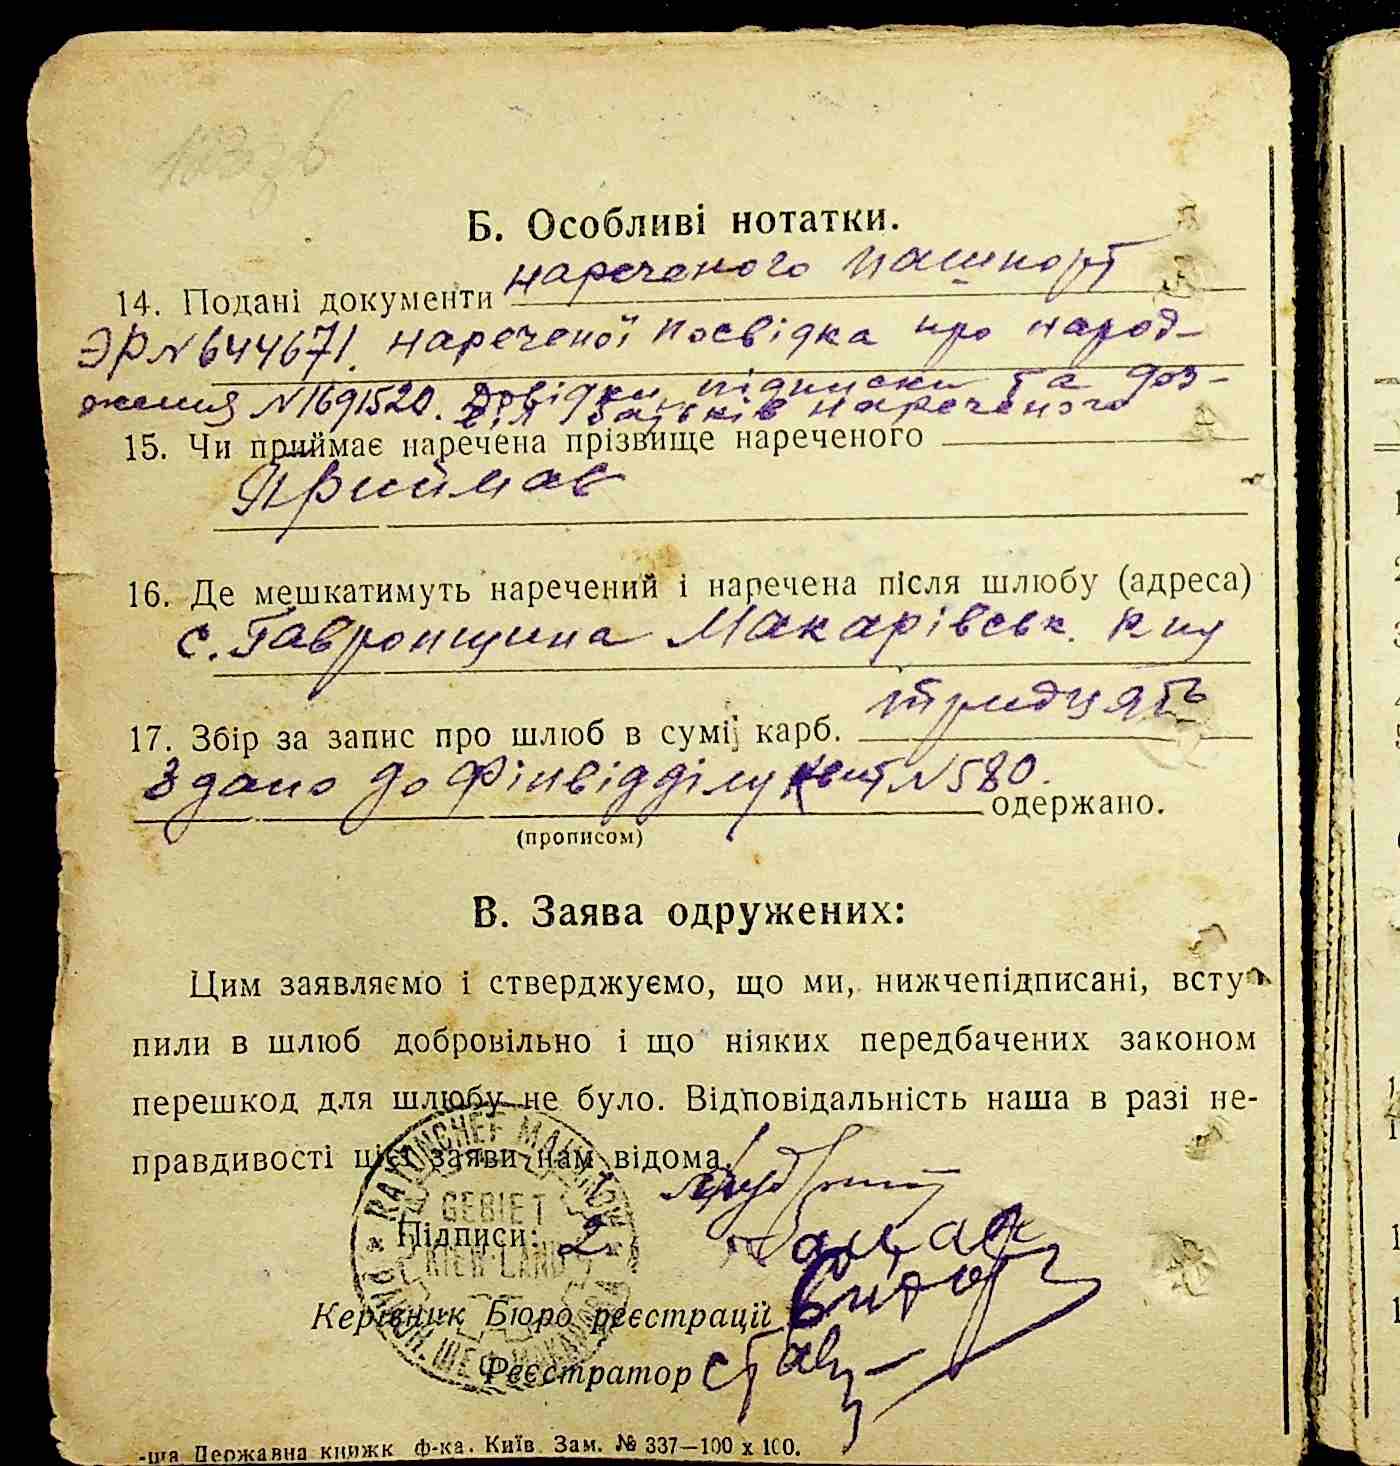 Б. Особливі нотатки.
14. Подані документи нареченого пашпорт
ЭР № 644671. нареченої посвідка про народ-
ження № 1691520. Довідки, підписки та доз-
віл батьків нареченого
15. Чи приймає наречена прізвище нареченого
Приймає
16. Де мешкатимуть наречений і наречена після шлюбу (адреса)
с. Гавронщина Макарівськ.
17. Збір за запис про шлюб в сумі карб. тридцять
Здано до Фінвідділу квит № 580. одержано.
(прописом)
В. Заява одружених:
Цим заявляємо і стверджуємо, що ми, нижчепідписані, всту-
пили в шлюб добровільно і що ніяких передбачених законом
перешкод для шлюбу не було. Відповідальність наша в разі не-
правдивості цієї заяви нам відома.
RAYONCHEF MAKARIW
GEBIET
KIEW-LAND
Підписи: 2.
Керівник Бюро реєстрації
Реєстратор
-ша Державна книжк. ф-ка. Київ. Зам. № 337—100 х 100.